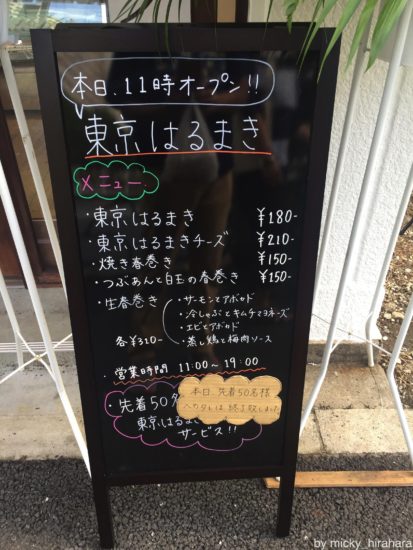 本日、11時オープン!!
東京はるまき
メニュー
・東京はるまき ¥180-
・東京はるまきチーズ ¥210-
・焼き春巻き ¥150-
・つぶあんと白玉の春巻き ¥150
・生春巻き
・サーモンとアボカド
・冷しゃぶとキムチマヨネーズ
・エビとアボカド
各¥310- ・蒸し鶏と梅肉ソース
・営業時間 11:00~19:00
・先着50名
東京はるま
サービス!!
本日、先着50名様
は終了致しました
by micky_hirahara